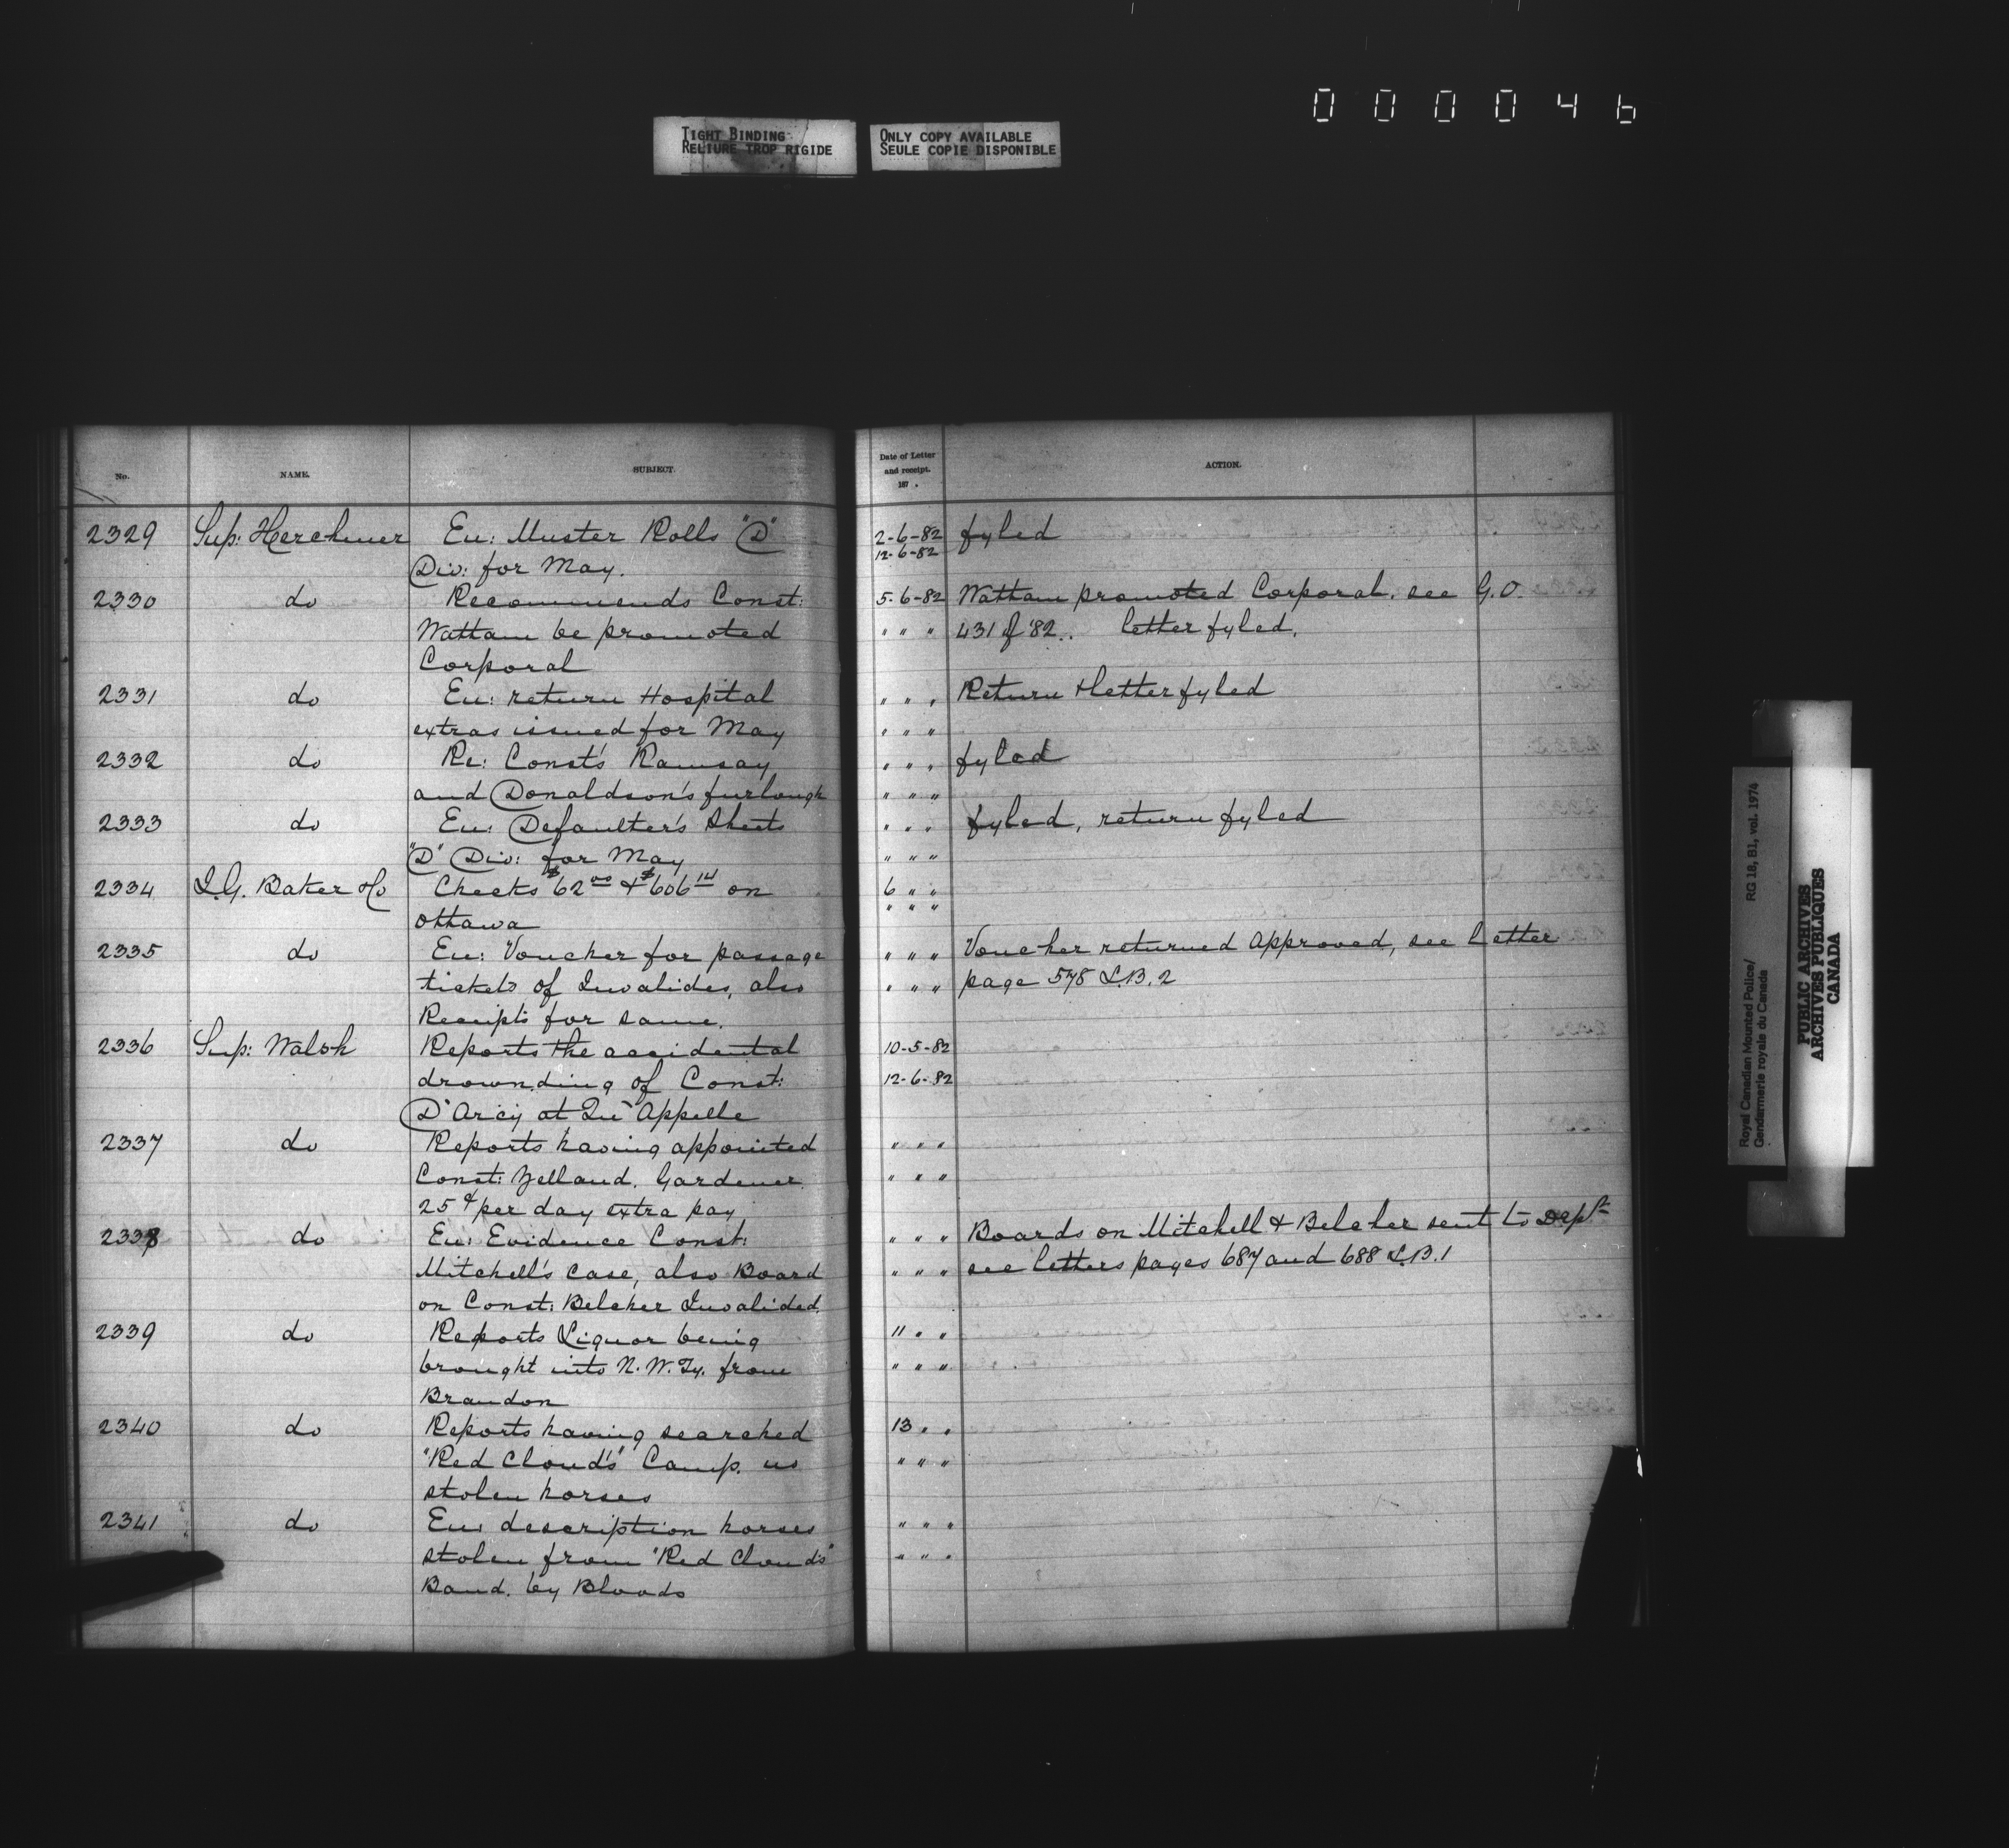 000046
TIGHT BINDING
RELIURE TROP RIGIDE
ONLY COPY AVAILABLE
SEULE COPIE DISPONIBLE
No. NAME. SUBJECT.
2329 Sup: Herchmer En: Muster Rolls "D"
Div: for May.
2330 do Recommends Const:
Wattam be promoted
Corporal
2331 do En: return Hospital
extras issued for May
2332 do Re: Const's Ramsay
and Donaldson's furlough
2333 do En: Defaulter's Sheets
"D" Div: for May
2334 I.G. Baker & Co Checks $62 00 & $606 14 on
Ottawa
2335 do En: Voucher for passage
tickets of Invalides, also
Receipts for same.
2336 Sup: Walsh Reports the accidental
drownding of Const:
D'Arcy at Qu'Appelle
2337 do Reports having appointed
Const: Yelland. Gardener
25¢ per day extra pay
2338 do En: Evidence Const:
Mitchell's case, also Board
on Const: Belcher Invalided.
2339 do Reports Liquor being
brought into N.W.Ty. from
Brandon
2340 do Reports having searched
"Red Cloud's" Camp. no
stolen horses
2341 do En: description horses
stolen from "Red Cloud's"
Band. by Bloods
Date of Letter
and receipt.
187 .
ACTION.
2-6-82 fyled
12-6-82
5-6-82 Wattam promoted Corporal. see G.O.
" " " 431 of '82.. letter fyled.
" " " Return & letter fyled
" " "
" " " fyled
" " "
" " " fyled, return fyled
" " "
6 " "
" " "
" " " Voucher returned approved, see letter
" " " page 578 L.B.2
10-5-82
12-6-82
" " "
" " "
" " " Boards on Mitchell & Belcher sent to Dept
" " " see letters pages 687 and 688 L.B.1
11 " "
" " "
13 " "
" " "
" " "
" " "
Royal Canadian Mounted Police/ RG 18, B1, vol. 1974
Gendarmerie royale du Canada
PUBLIC ARCHIVES
ARCHIVES PUBLIQUES
CANADA